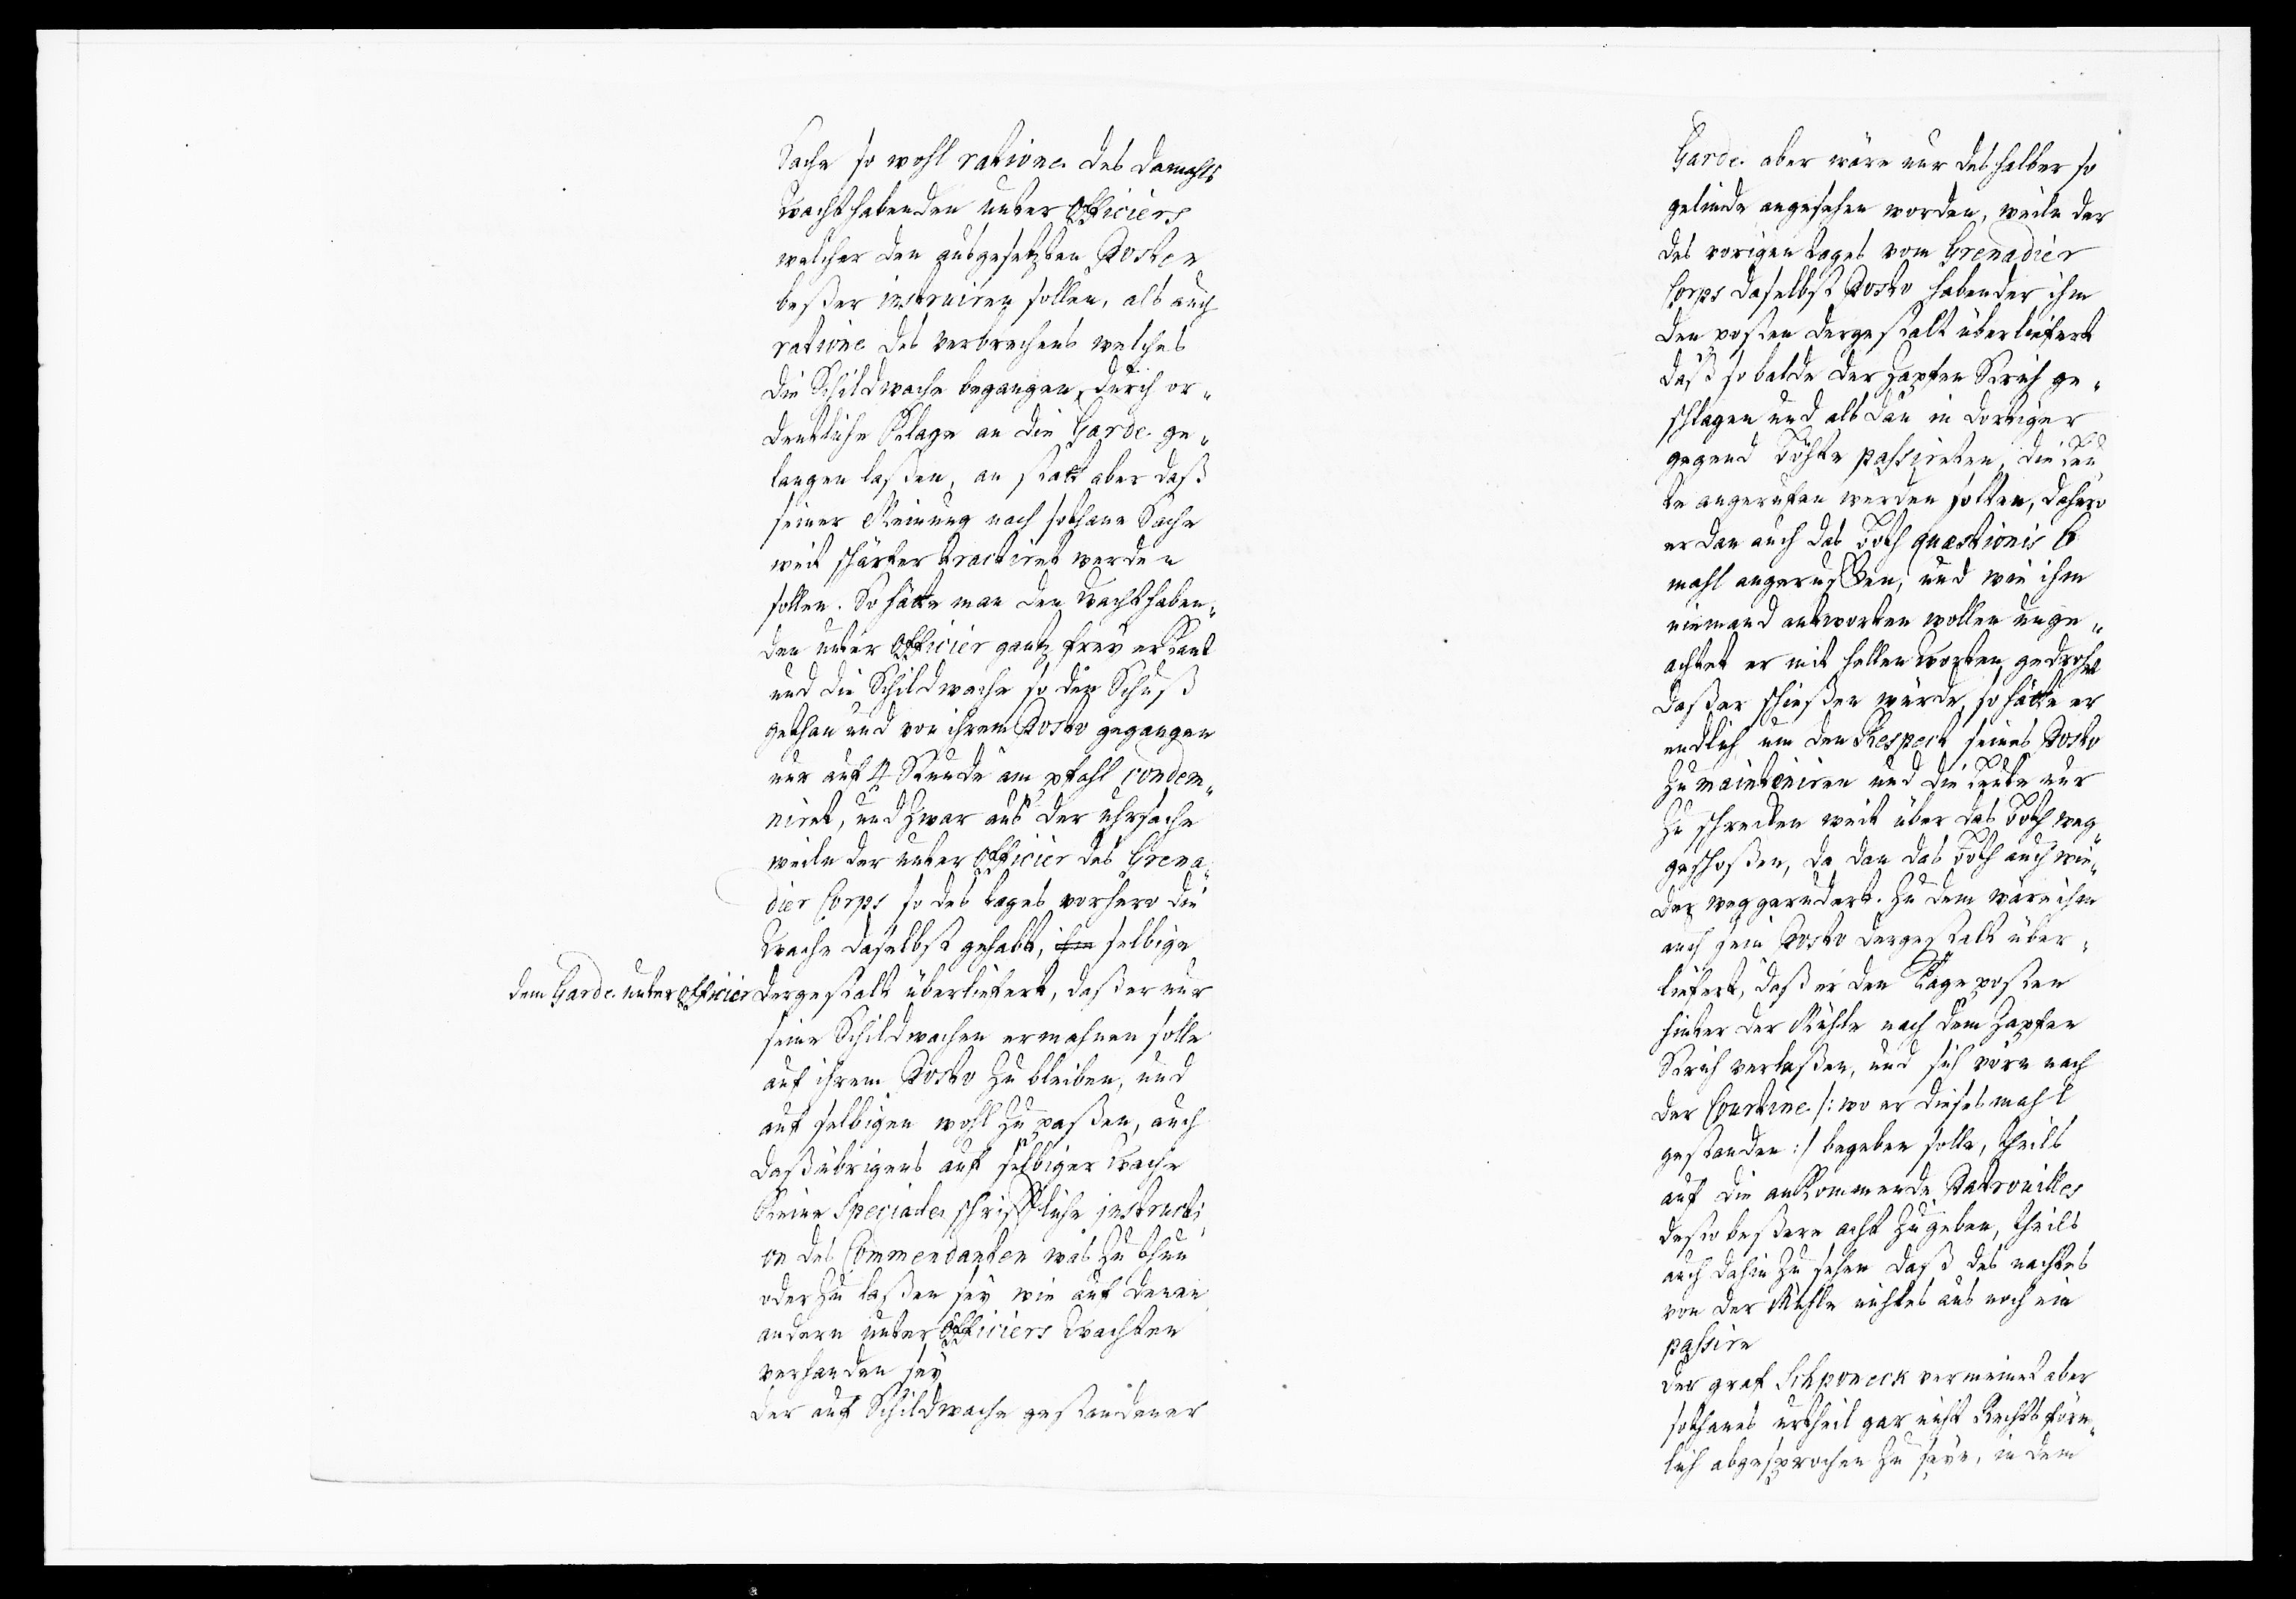 Sache so wohl ratione des damahls
Wachthabenden unter Officiers
welcher den ausgesetzten Posten
beßer instruiren sollen, als auch
ratione des verbrechens welches
die Schildwache begangen, durch or„
dentliche Klage an die Garde ge„
langen laßen, an statt aber daß
seiner Meinung nach sothane Sache
weit schärfer tractiret werden
sollen. So hätte man den Wachthaben„
den unter Officier gantz frey erkant
und die Schildwache so den Schuß
gethan und von ihrem Posto gegangen
nur auf 4 Stunde am pfahl condem„
niret, und zwar aus der uhrsache
weile der unter Officier des Grena„
dier Corps so des tages vorhero die
Wache daselbst gehabt, ihm selbige
dem Garde unter Officier dergestalt überliefert, daß er nur
seine Schildwachen ermahnen solle
auf ihrem Posto zu bleiben, und
auf selbigen wohl zu paßen, auch
daß übrigens auf selbiger Wache
keine Speciale schrifftliche instructi„
on des Commendanten was zu thun
oder zu laßen sey wie auf denen
andern unter Officiers Wachten
verhanden sey
der auf Schildwache gestandener
Garde aber wäre nur deshalber so
gelinde angesehen worden, weile der
des vorigen tages vom Grenadier
Corps daselbst Posto habender ihm
den posten dergestalt überliefert
daß so balde der Zapfen Streich ge„
schlagen und als dan in dortiger
gegend Böhte passireten, die Leu
te angerufen werden solten, dahero
er dan auch das Both quaestionis 6
mahl angeruffen, und wie ihm
niemand antworten wollen unge„
achtet er mit hellen Worten gedrohet
daß er schießen würde, so hätte er
endlich um den Respect seines Posto
zu mainteniren und die Leute nur
zu schrecken weit über das Both weg„
geschoßen, da dan das Both auch wie„
der weggerudert. Zu dem wäre ihm
auch sein Posto dergestalt über„
liefert, daß er den Tage posten
hinter der Mühle nach dem Zapfen
Streich verlaßen, und sich vorn nach
der Courtine /: wo er dieses mahl
gestanden :/ begeben solle, theils
auf die ankommende Patrouilles
desto beßere acht zugeben, theils
auch dahin zu sehen daß des nachtes
von der Mühle nichtes aus noch ein
passire
der graf Schponeck vermeinet aber
sothanes urtheil gar nicht Rechts förm„
lich abgesprochen zu seyn, in dem